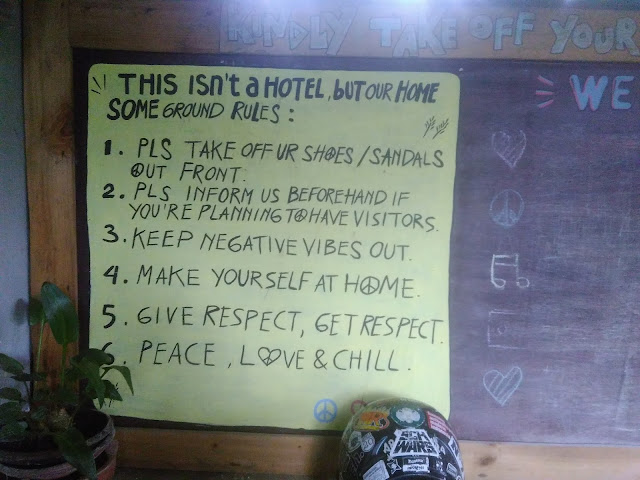 KINDLY TAKE OFF YOUR
THIS ISn't a HOTEL, BUT OUR HOME
SOME GROUND RULES:
1. PLS TAKE OFF UR SHOES/SANDALS
OUT FRONT.
2. PLS INFORM US BEFOREHAND IF
YOU'RE PLANNING TO HAVE VISITORS.
3. KEEP NEGATIVE VIBES OUT.
4. MAKE YOURSELF AT HOME.
5. GIVE RESPECT, GET RESPECT.
6. PEACE, LOVE & CHILL.
WE
WARS